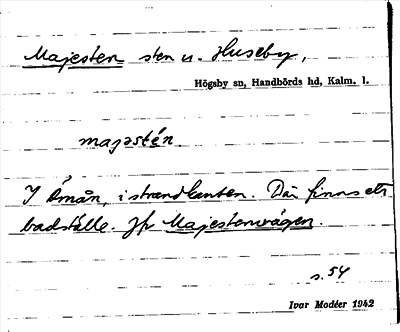 Majesten sten u. Huseby,
Högsby sn, Handbörds hd, Kalm. l.
majəstén
I Åmån, i strandkanten. Där finns ett
badställe. Jfr Majestensvägen.
s. 54
Ivar Modéer 1942